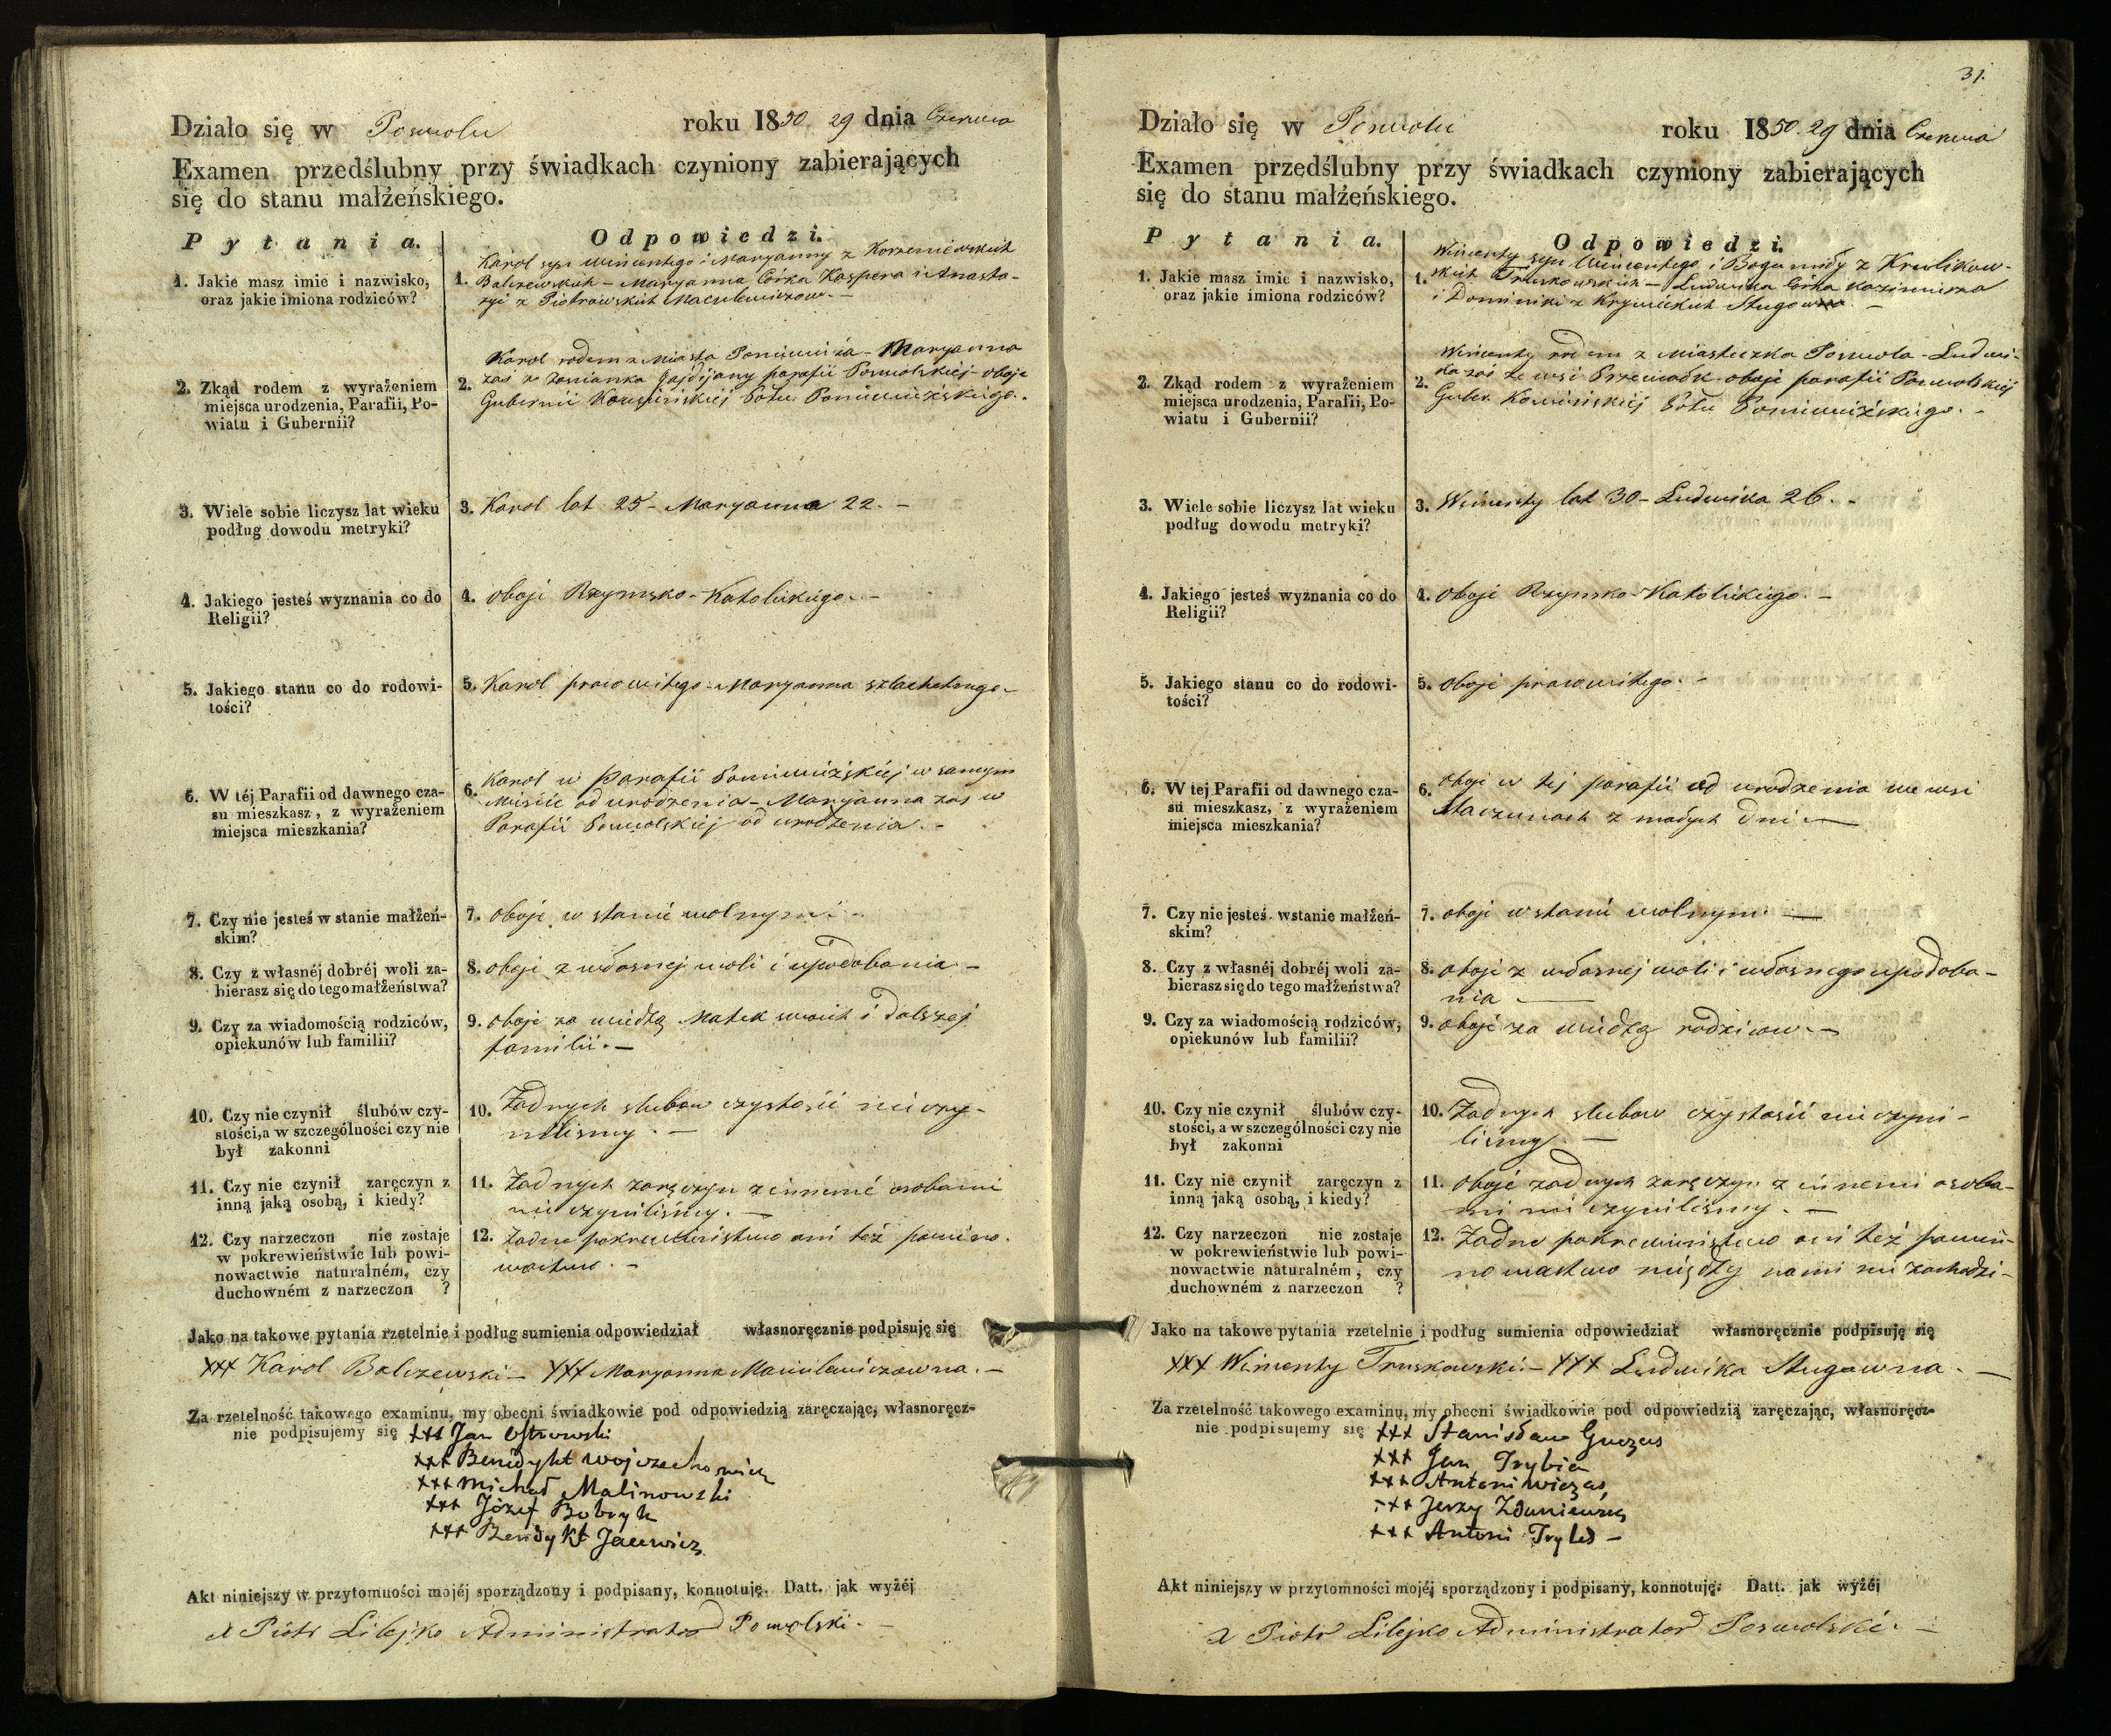 Działo się w Poswolu roku 1850 29 dnia Czerwca
Examen przedślubny przy świadkach czyniony zabierających
się do stanu małżeńskiego.
Pytania. Odpowiedzi.
1. Jakie masz imie i nazwisko,
oraz jakie imiona rodziców?
1. Karol syn Wincentego i Maryanny z Korzeniewskich
Balczewskich - Maryanna Córka Kaspera i Anasta-
zyi z Piotrowskich Maculewiczow. -
2. Zkąd rodem z wyrażeniem
miejsca urodzenia, Parafii, Po-
wiatu i Gubernii?
2. Karol rodem z Miasta Poniewieża - Maryanna
zaś z Zascianka Gajdijany parafii Poswolskiej - oboje
Gubernii Kowieńskiej Pottu Poniewieżskiego. -
3. Wiele sobie liczysz lat wieku
podług dowodu metryki?
3. Karol lat 25 - Maryanna 22. -
4. Jakiego jesteś wyznania co do
Religii?
4. oboje Rzymsko-Katolickiego. -
5. Jakiego stanu co do rodowi-
tości?
5. Karol prawowitego - Maryanna szlachetnego -
6. W téj Parafii od dawnego cza-
su mieszkasz, z wyrażeniem
miejsca mieszkania?
6. Karol w Parafii Poniewieżskiej w samym
Mieście od urodzenia - Maryanna zaś w
Parafii Poswolskiej od urodzenia. -
7. Czy nie jesteś w stanie małżeń-
skim?
7. oboje w stanie wolnym. -
8. Czy z własnéj dobréj woli za-
bierasz się do tego małżeństwa?
8. oboje z własnej woli i upodobania -
9. Czy za wiadomością rodziców,
opiekunów lub familii?
9. oboje za wiedzą Matek swoich i dalszej
familii. -
10. Czy nie czynił ślubów czy-
stości, a w szczególności czy nie
był zakonni
10. Żadnych slubow czystości nie czy-
niliśmy. -
11. Czy nie czynił zaręczyn z
inną jaką osobą, i kiedy?
11. Żadnych zaręczyn z innemi osobami
nie czyniliśmy. -
12. Czy narzeczon nie zostaje
w pokrewieństwie lub powi-
nowactwie naturalném, czy
duchowném z narzeczon ?
12. Żadne pokrewieństwo ani też powino-
wactwo. -
Jako na takowe pytania rzetelnie i podług sumienia odpowiedział własnoręcznie podpisuję się
XXX Karol Balczewski - XXX Maryanna Maculewiczowna. -
Za rzetelność takowego examinu, my obecni świadkowie pod odpowiedzią zaręczając, własnoręcz-
nie podpisujemy się xxx Jan Ostrowski
xxx Benedykt Wojciechowicz
xxx Michał Malinowski
xxx Józef Bobryk
xxx Benedykt Jacewicz
Akt niniejszy w przytomności mojéj sporządzony i podpisany, konnotuję. Datt. jak wyżéj
X Piotr Libejko Administrator Poswolski. -
31.
Działo się w Poswolu roku 1850. 29 dnia Czerwca
Examen przedślubny przy świadkach czyniony zabierających
się do stanu małżeńskiego.
Pytania. Odpowiedzi.
1. Jakie masz imie i nazwisko,
oraz jakie imiona rodziców?
1. Wincenty syn Wincentego i Bogumiły z Krolikow-
skich Truskowskich - Ludwika Córka Kazimierza
i Dominiki z Krywickich Sługowna. -
2. Zkąd rodem z wyrażeniem
miejsca urodzenia, Parafii, Po-
wiatu i Gubernii?
2. Wincenty rodem z Miasteczka Poswola - Ludwi-
ka zaś ze wsi oboje parafii Poswolskiej
Guber. Kowieńskiej Pottu Poniewieżskiego. -
3. Wiele sobie liczysz lat wieku
podług dowodu metryki?
3. Wincenty lat 30 - Ludwika 26. -
4. Jakiego jesteś wyznania co do
Religii?
4. oboje Rzymsko-Katolickiego. -
5. Jakiego stanu co do rodowi-
tości?
5. oboje prawowitego. -
6. W tej Parafii od dawnego cza-
su mieszkasz, z wyrażeniem
miejsca mieszkania?
6. oboje w tej parafii od urodzenia we wsi
z małych dni -
7. Czy nie jesteś wstanie małżeń-
skim?
7. oboje w stanie wolnym. -
8. Czy z własnéj dobréj woli za-
bierasz się do tego małżeństwa?
8. oboje z własnej woli i własnego upodoba-
nia -
9. Czy za wiadomością rodziców,
opiekunów lub familii?
9. oboje za wiedzą rodzicow. -
10. Czy nie czynił ślubów czy-
stości, a w szczególności czy nie
był zakonni
10. Żadnych slubow czystości nie czyni-
liśmy. -
11. Czy nie czynił zaręczyn z
inną jaką osobą, i kiedy?
11. oboje żadnych zaręczyn z innemi osoba-
mi nie czyniliśmy. -
12. Czy narzeczon nie zostaje
w pokrewieństwie lub powi-
nowactwie naturalném, czy
duchowném z narzeczon ?
12. Żadne pokrewieństwo ani też powi-
nowactwo między nami nie zachodzi -
Jako na takowe pytania rzetelnie i podług sumienia odpowiedział własnoręcznie podpisuję się
XXX Wincenty Truskowski. - XXX Ludwika Sługowna. -
Za rzetelność takowego examinu, my obecni świadkowie pod odpowiedzią zaręczając, własnoręcz-
nie podpisujemy się xxx Stanisław Guczas
xxx Jan
xxx Antoni
xxx Jerzy
xxx Antoni
Akt niniejszy w przytomności mojéj sporządzony i podpisany, konnotuję. Datt. jak wyżéj
X Piotr Libejko Administrator Poswolski. -